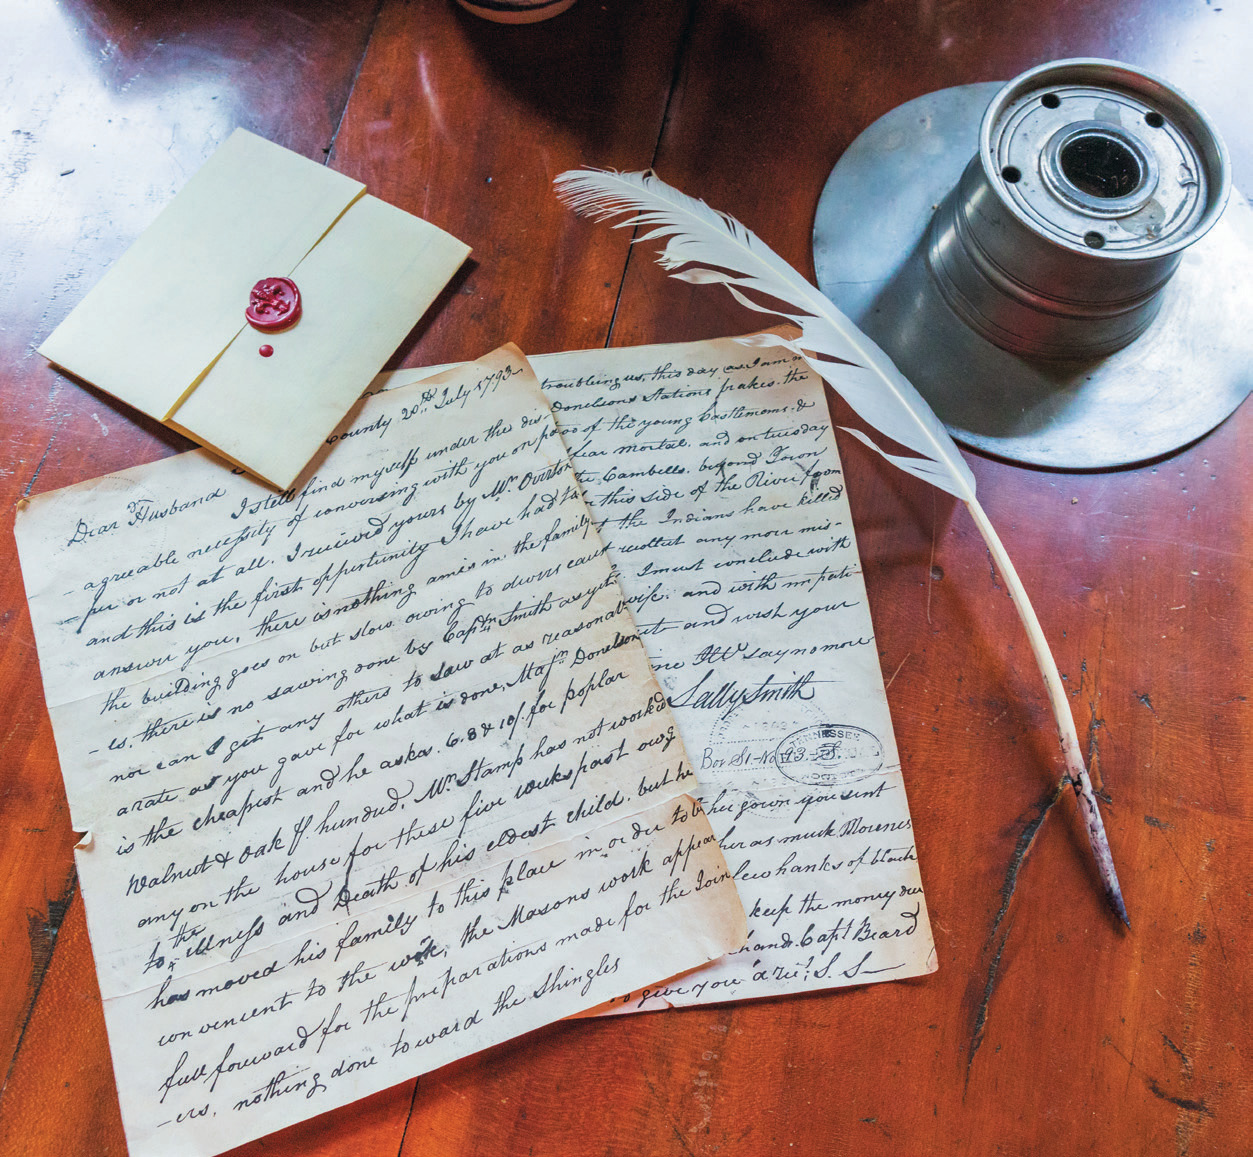 County 20th July 1793
Dear Husband I still find myself under the dis-
agreeable necessity of conversing with you on pa
per or not at all. I received yours by Mr Overton
and this is the first opportunity I have had to
answer you, there is nothing amis in the family
the building goes on but slow owing to divers caus
-es, there is no sawing done by Captn Smith as yet
nor can I get any others to saw at as reasonab
a rate as you gave for what is done, Majr Donelson
is the cheapest and he askes 6. 8 & 10/ for poplar
Walnut & Oak hundred, Mr Stamp has not worked
any on the house for these five weeks past owg
to the illness and Death of his eldest child. but he
has moved his family to this place in order to be
convenient to the work, the Masons work appear
full forward for the preparations made for the Join
-ers, nothing done toward the Shingles
troubling us, this day as I am
Donelsons Stations brakes the
of the young Castlemans, &
fear mortal, and on tuesday
Cambells, beyond Town
this side of the River from
the Indians have killed
recollect any more mis-
I must conclude with
wife. and with impati
and wish your
say no more
Sally Smith
TENNESSEE
Box S1-No 93
her gown you sent
her as much Moreens
few hanks of black
keep the money due
hand. Capt Beard
to give you S. S